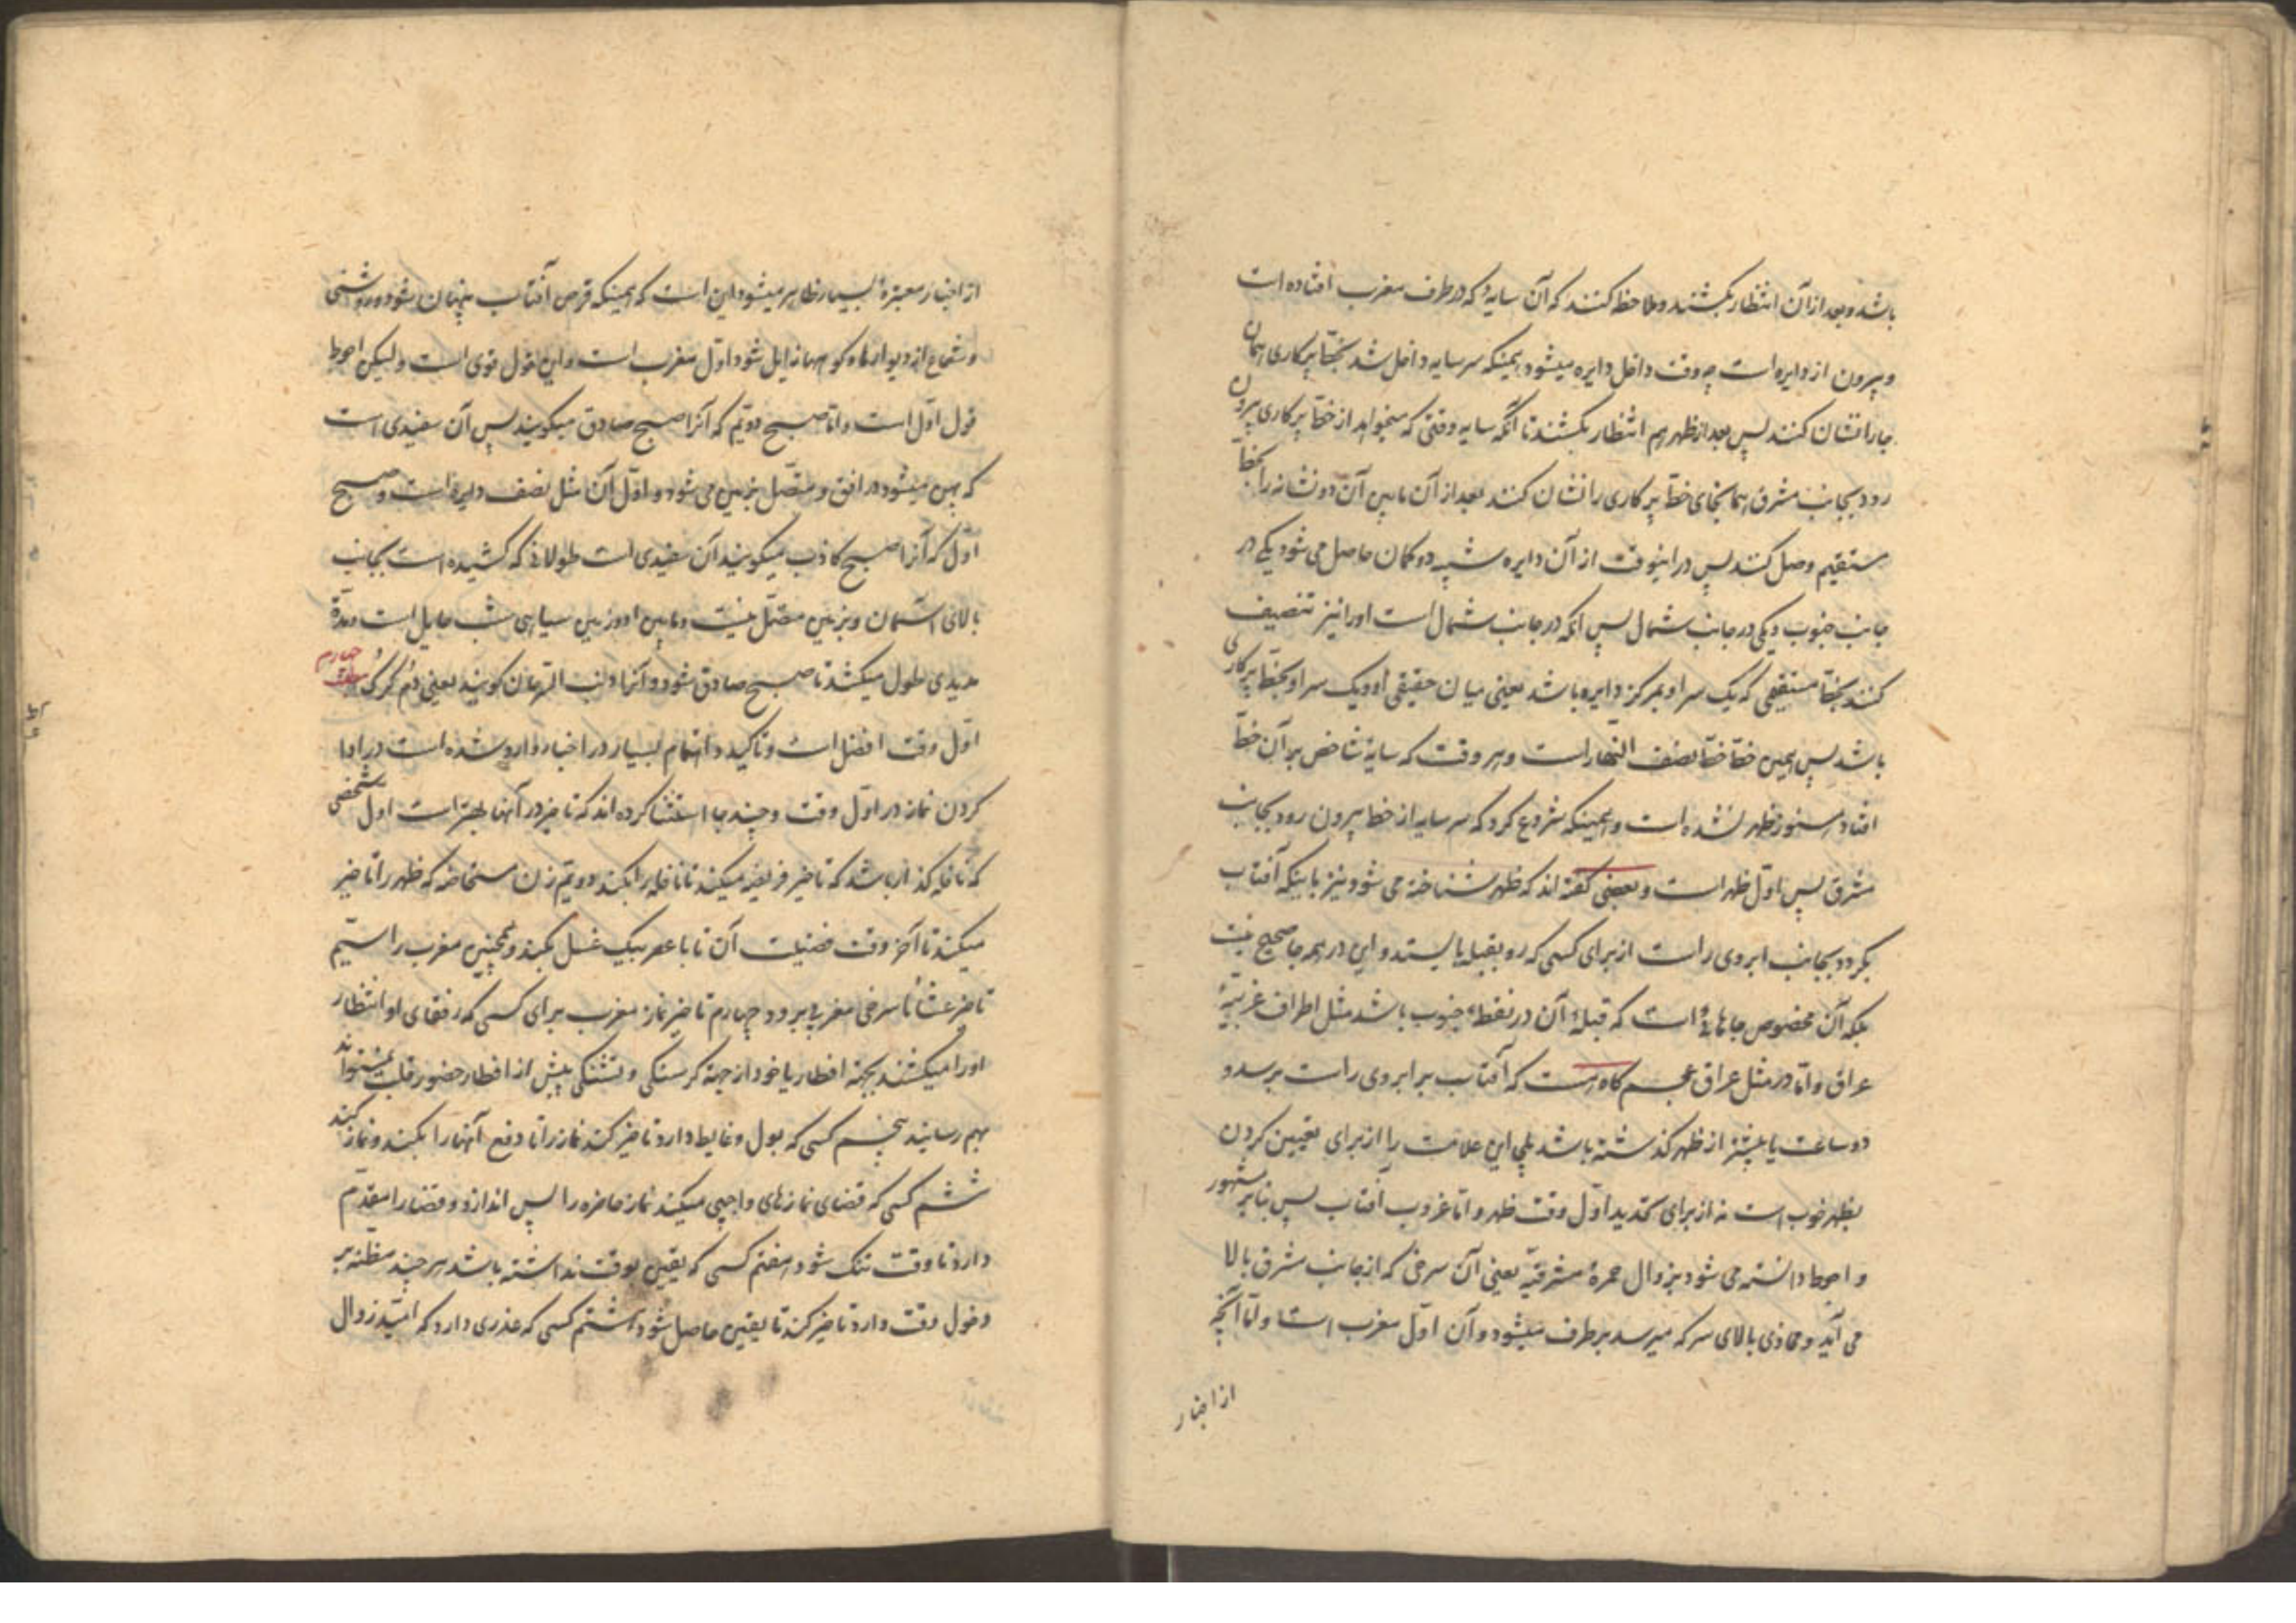 باشد و بعد از آن انتظار بکشند و ملاحظه کنند که آن سایه که در طرف مغرب افتاده است
و بیرون از دایره است چه وقت داخل دایره میشود همینکه سر سایه داخل شد بخط پرکاری همان
جا را نشان کنند پس بعد از ظهر هم انتظار بکشند تا آنکه سایه وقتی که میخواهد از خط پرکاری بیرون
رود بجانب مشرق همانجای خط پرکاری را نشان کنند بعد از آن مابین آن دو نشانه را بخط
مستقیم وصل کنند پس در اینوقت از آن دایره شبیه دو کمان حاصل می شود یکی در
جانب جنوب و یکی در جانب شمال پس آنکه در جانب شمال است او را نیز تنصیف
کنند بخط مستقیمی که یک سر او بمرکز دایره باشد یعنی میان حقیقی او و یک سر او بخط پرکاری
باشد پس همین خط خط نصف النهار است و هر وقت که سایهٔ شاخص بر آن خط
افتاد هنوز ظهر نشده است و همینکه شروع کرد که سر سایه از خط بیرون رود بجانب
مشرق پس اول ظهر است و بعضی گفته اند که ظهر شناخته می شود نیز باینکه آفتاب
بگردد بجانب ابروی راست از برای کسی که رو بقبله بایستد و این در همه جا صحیح نیست
بلکه آن مخصوص جاهائی است که قبلهٔ آن در نقطهٔ جنوب باشد مثل اطراف غربیهٔ
عراق و اما در مثل عراق عجم گاه هست که آفتاب برابروی راست برسد و
دو ساعت یا بیشتر از ظهر گذشته باشد بلی این علامت را از برای تعیین کردن
بظهر خوب است نه از برای تحدید اول وقت ظهر و اما غروب آفتاب پس بنابر مشهور
و احوط دانسته می شود بزوال حمرهٔ مشرقیه یعنی آن سرخی که از جانب مشرق بالا
می آید و محاذی بالای سر که میرسد برطرف میشود و آن اول مغرب است و اما آنچه
از اخبار
از اخبار معتبرهٔ بسیار ظاهر میشود این است که همینکه قرص آفتاب پنهان شود و روشنی
و شعاع از دیوارها و کوهها زایل شود اول مغرب است و این قول قوی است و لیکن احوط
قول اول است و اما صبح دویم که آنرا صبح صادق میگویند پس آن سفیدی است
که پهن میشود در افق و متصل بزمین می شود و اول آن مثل نصف دایره است و صبح
اول که آنرا صبح کاذب میگویند آن سفیدی است طولانی که کشیده است بجانب
بالای آسمان و بزمین متصل نیست و مابین او و زمین سیاهی شب حایل است و مدة
مدیدی طول میکشد تا صبح صادق شود و آنرا ذنب السرحان گویند یعنی دم گرگ چهارم
اول وقت افضل است و تاکید و اهتمام بسیار در اخبار وارد شده است در ادا
کردن نماز در اول وقت و چند جا استثنا کرده اند که تاخیر در آنها بهتر است اول شخصی
که نافله گذار باشد که تاخیر فریضه میکند تا نافله را بکند دویم زن مستحاضه که ظهر را تاخیر
میکند تا آخر وقت فضیلت آن تا با عصر بیک غسل بکند و همچنین مغرب را سیم
تاخیر عشا تا سرخی مغربی برود چهارم تاخیر نماز مغرب برای کسی که رفقای او انتظار
او را میکشند بجهة افطار یا خود از جهة گرسنگی و تشنگی پیش از افطار حضور قلب نمیتواند
بهم رساند پنجم کسی که بول و غایط دارد تاخیر کند نماز را تا دفع آنها را بکند و نماز کند
ششم کسی که قضای نمازهای واجبی میکند نماز حاضره را پس اندازد و قضا را مقدم
دارد تا وقت تنگ شود هفتم کسی که یقین بوقت نداشته باشد هر چند مظنه بر
دخول وقت دارد تاخیر کند تا یقین حاصل شود هشتم کسی که عذری دارد که امید زوال